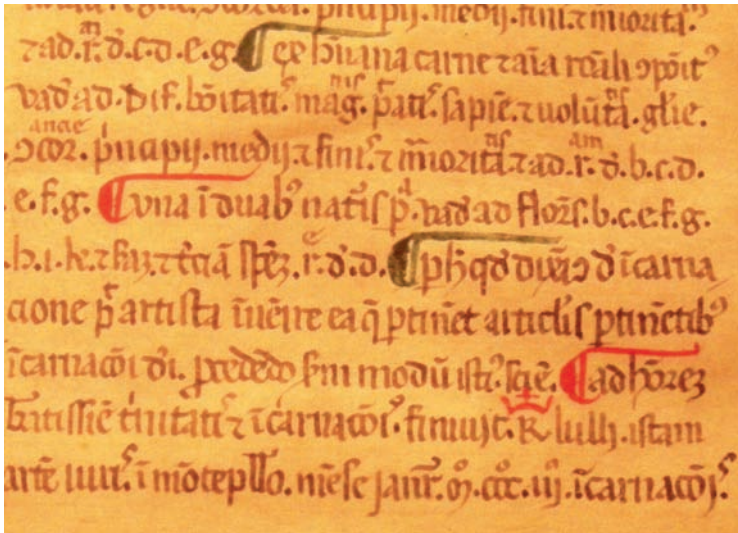 principij. medij. fini. ⁊ miorita.
⁊ ad .r. d̄. c. d. e. g. ¶ ex hūana carne ⁊ aīa roāli ɔpōit᷒
vad᷒ ad. Dif. bōitati᷒. mag. p̄ati᷒. sapiē. ⁊ volūta. gl̄ie.
ɔcor. p̄ncipij. medij. ⁊ fini᷒. ⁊ mīorita. ⁊ ad .r. d̄. b. c. d.
e. f. g. ¶ vna ī duab᷒ natis p̄. vad᷒ ad flor̄s. b. c. e. f. g.
.h. i. k. ⁊ ⁊ t̄ciā spēz. r. d̄. d. ¶ p h̄ qd̄ dixīɔ d̄ īcarna
cione p̄ artista īuēire ea q̄ ptinēt articl̄is ptinētib᷒
īcarnacōi d̄i. pcedēdo s̄m modū isti᷒. sciē. ¶ ad hōrez
b̄atissiē t̄initati᷒ ⁊ īcarnacōi᷒. finiuit. R lulli. istam
artē in mōtepl̄lo. mēse januar̄. m̊. ccc̊. iij. īcarnacōi᷒.